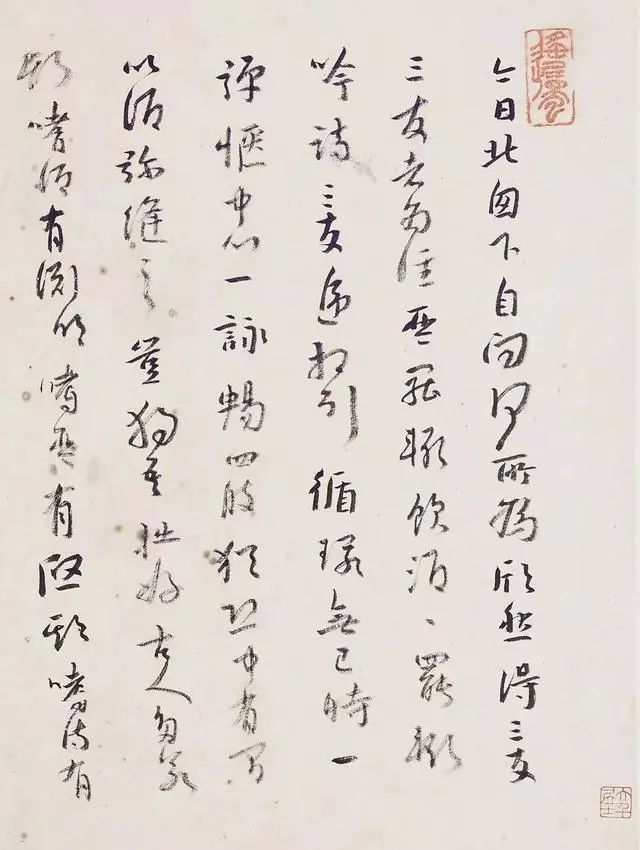 今日北囱下自问何所為欣然得三友
三友者为誰琴罷輒飲酒〻罷輒
吟詩三友遞相引循環無已時一
彈愜中心一詠暢四肢猶恐中有間
以酒彌縫之豈獨吾拙好古人多若
斯嗜酒有渊明嗜琴有啟期嗜詩有